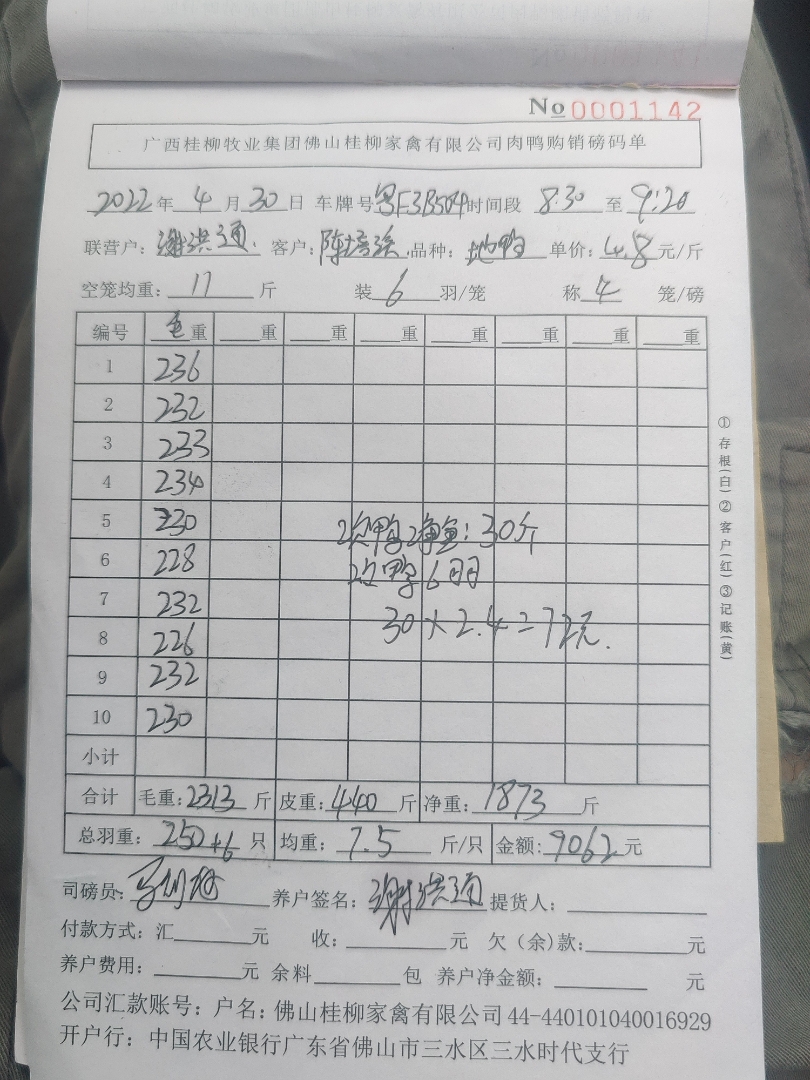 No 0001142
广西桂柳牧业集团佛山桂柳家禽有限公司肉鸭购销磅码单
2022年4月30日 车牌号粤F3B504时间段 8:30 至 9:20
联营户：谢洪通. 客户：陈 品种：地鸭 单价：4.8元/斤
空笼均重：11斤 装6羽/笼 称4笼/磅
编号 毛重 重 重 重 重 重 重 重
1 236
2 232
3 233
4 234
5 230
6 228
7 232
8 226
9 232
10 230
次鸭净重：30斤
次鸭6羽
30×2.4=72元.
小计
合计 毛重：2313斤 皮重：440斤 净重：1873斤
总羽重：250+6只 均重：7.5斤/只 金额：9062元
司磅员： 养户签名：谢洪通 提货人：
付款方式：汇 元 收： 元 欠（余）款： 元
养户费用： 元 余料 包 养户净金额： 元
公司汇款账号：户名：佛山桂柳家禽有限公司44-440101040016929
开户行：中国农业银行广东省佛山市三水区三水时代支行
①存根(白)②客户(红)③记账(黄)